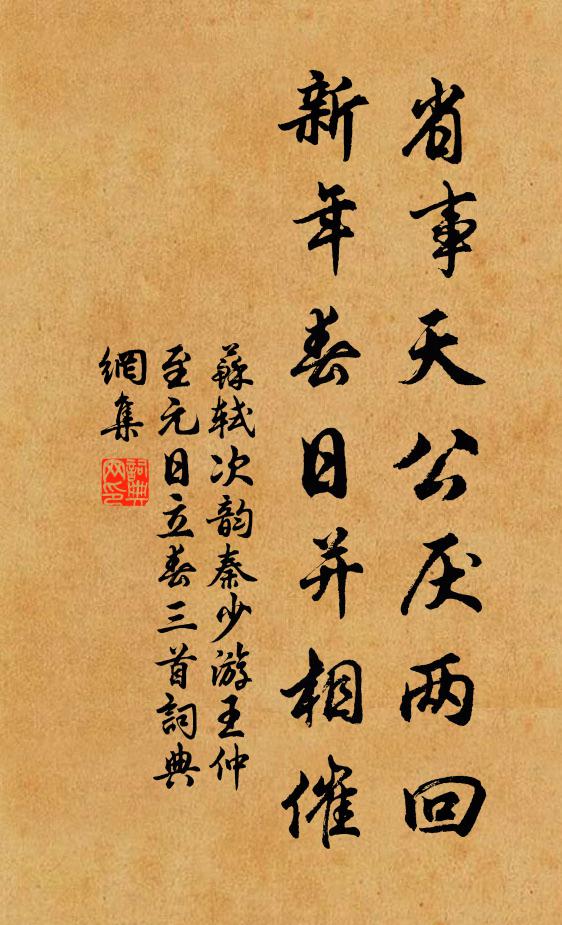 省事天公厌两回
新年春日并相催
蘇軾次韵秦少游王仲
至元日立春三首詞典
網集
詞典
网印